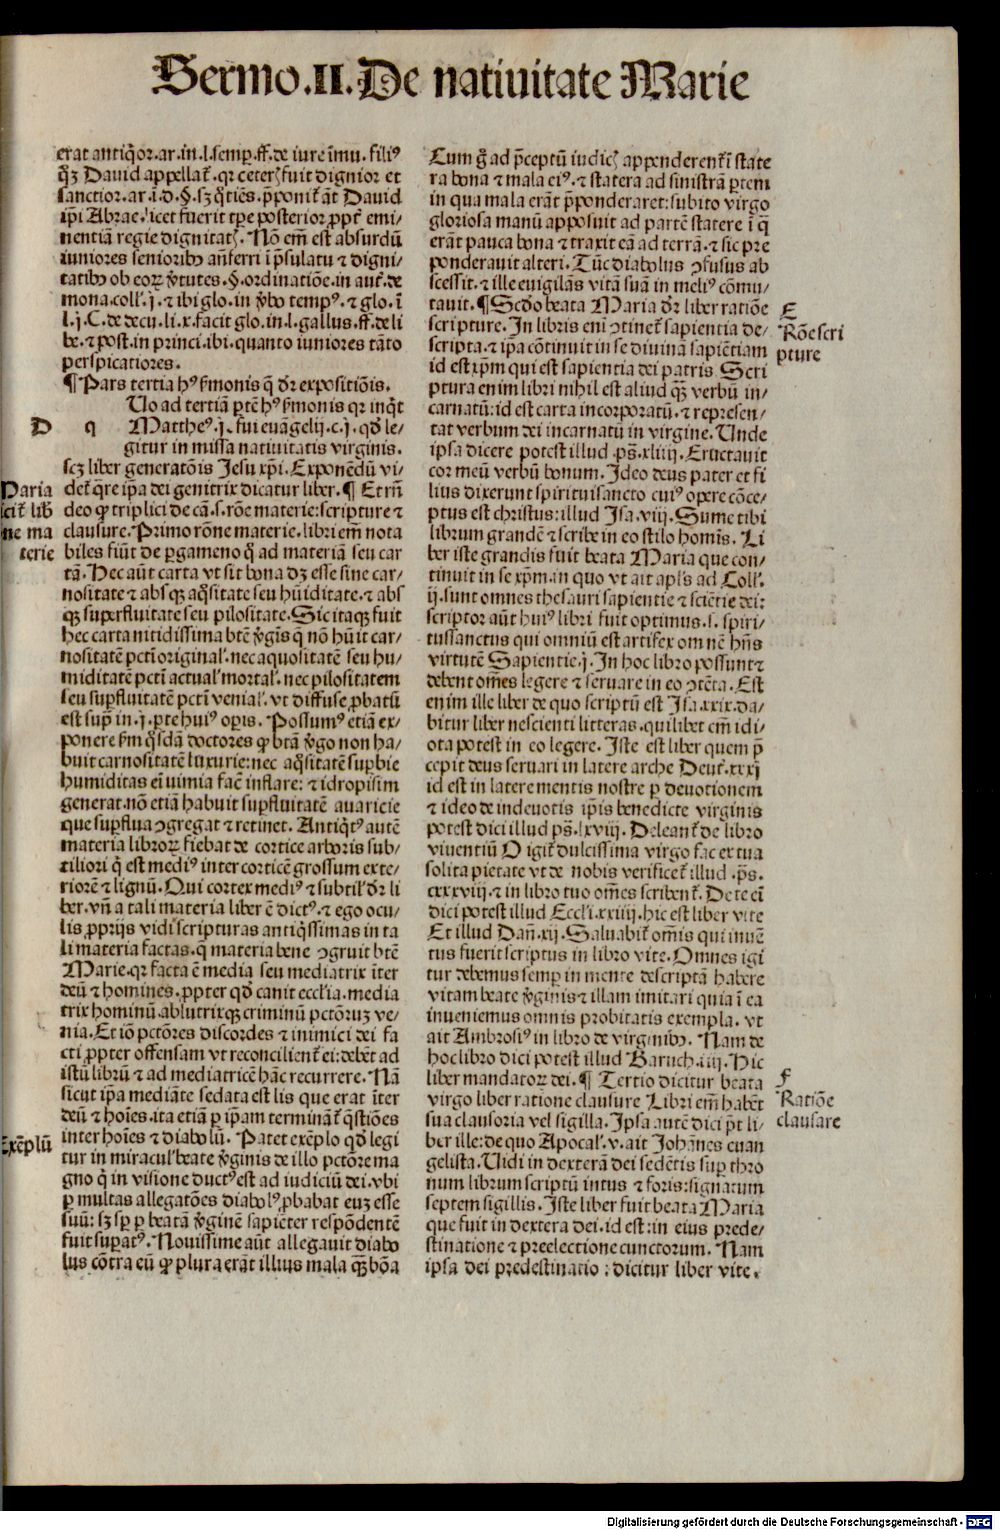 Sermo .II. De natiuitate Marie
erat antiq̃oꝛ. ar. in. l. semp̲. ff. de iure ĩmu. filiꝰ
q̃ꝫ Dauid appellat̃. qꝛ ceterꝭ fuit dignior et
sanctior. ar. i. d. §. sꝫ q̃tiẽs. p̃ponit̃ ãt Dauid
ip̃i Abrae. licet fuerit tp̃e posterior ꝓpt̃ emi⸗
nentiã regie dignitatꝭ. Nõ em̃ est absurdũ
iuniores senioribꝰ añferri ĩ p̃sulatu ⁊ digni⸗
tatibꝰ ob eoꝝ v̓tutes. §. ordinatiõe. in aut̃. de
mona. coll'. j. ⁊ ibi glo. in v̓bo tempꝰ. ⁊ glo. ĩ
l. j. C. de decu. li. x. facit glo. in. l. gallus. ff. de li
be. ⁊ post. in princi. ibi. quanto iuniores tãto
perspicatiores.
¶ Pars tertia hꝰ s̃monis q̃ dr̃ expositiõis.
Uo ad tertiã p̲tẽ hꝰ s̃monis qꝛ inq̃t
D q Mattheꝰ. j. sui euãgelij. c. j. qd̃ le⸗
gitur in missa natiuitatis virginis.
scꝫ liber generatõis Jesu xp̃i. Exponẽdũ vi⸗
det̃ q̃re ip̃a dei genitrix dicatur liber. ¶ Et rñ
deo ꝙ triplici de cã. s. rõne materie: scripture ⁊
clausure. Primo rõne materie. libri em̃ nota
biles fiũt de p̲gameno q̃ ad materiã seu car
tã. Hec aũt carta vt sit bona dꝫ esse sine car⸗
nositate ⁊ absqꝫ aq̃sitate seu hũiditate. ⁊ abs
qꝫ superfluitate seu pilositate. Sic itaqꝫ fuit
hec carta nitidissima btẽ v̓gĩs q̃ nõ hũit car⸗
nositatẽ pctĩ original'. nec aquositatẽ seu hu⸗
miditatẽ pctĩ actual' mortal'. nec pilositatem
seu sup̲fluitatẽ pctĩ venial'. vt diffuse ꝓbatũ
est sup̲ in. j. p̲te huiꝰ opis. Possumꝰ etiã ex⸗
ponere s̃m q̃sdã doctores ꝙ btã v̓go non ha⸗
buit carnositatẽ luxurie: nec aq̃sitatẽ sup̲bie
humiditas eĩ nimia facĩt inflare: ⁊ idropisim
generat. nõ etiã habuit sup̲fluitatẽ auaricie
que sup̲flua ↄgregat ⁊ retinet. Antiq̃tꝰ autẽ
materia libroꝝ fiebat de cortice arboris sub⸗
tiliori q̃ est mediꝰ inter corticẽ grossum exte⸗
riorẽ ⁊ lignũ. Qui cortex mediꝰ ⁊ subtil' dr̃ li
ber. vñ a tali materia liber ẽ dictꝰ. ⁊ ego ocu⸗
lis ꝓprijs vidi scripturas antiq̃ssimas in ta
li materia factas. q̃ materia bene ↄgruit btẽ
Marie. qꝛ facta ẽ media seu mediatrix ĩter
deũ ⁊ homines. ꝓpter qd̃ canit eccl'ia. media
trix hominũ ablutrixqꝫ criminũ pctõꝝ ve⸗
nia. Et iõ pctõres discordes ⁊ inimici dei fa
cti ꝓpter offensam vt reconcilient̃ ei: debẽt ad
istũ librũ ⁊ ad mediatricẽ hãc recurrere. Nã
sicut ip̃a mediãte sedata est lis que erat ĩter
deũ ⁊ hoĩes. ita etiã p̲ ip̃am terminãt̃ q̃stiões
inter hoĩes ⁊ diabolũ. Patet exẽplo qd̃ legi
tur in miracul' beate v̓ginis de illo pctõre ma
gno q̃ in visione ductꝰ est ad iudiciũ dei. vbi
p̲ multas allegatões diabolꝰ ꝓbabat euꝫ esse
suũ: sꝫ sp̲ p̲ beatã v̓ginẽ sapiẽter respõdentẽ
fuit sup̲atꝰ. Nouissime aũt allegauit diabo
lus cõtra eũ ꝙ plura erãt illius mala q̃ꝫ bõa
Maria
ne ma
terie
Exẽplũ
Cum g̃ ad p̃ceptũ iudicꝭ appenderent̃ ĩ state
ra bona ⁊ mala eiꝰ. ⁊ statera ad sinistrã p̲tem
in qua mala erãt p̃ponderaret: subito virgo
gloriosa manũ apposuit ad partẽ statere ĩ q̃
erãt pauca bona ⁊ traxit eã ad terrã. ⁊ sic pre
ponderauit alteri. Tũc diabolus ↄfusus ab
scessit. ⁊ ille euigilãs vitã suã in meliꝰ cõmu⸗
tauit. ¶ Scd̃o beata Maria dr̃ liber ratiõe
scripture. In libris eni ↄtinet̃ sapientia de⸗
scripta. ⁊ ip̃a cõtinuit in se diuinã sapiẽtiam
id est xp̃m qui est sapientia dei patris. Scri
ptura enim libri nihil est aliud q̃ꝫ verbũ in⸗
carnatũ: id est carta incorporatũ. ⁊ represen⸗
tat verbum dei incarnatũ in virgine. Unde
ipsa dicere potest illud .ps̃. xliiij. Eructauit
cor meũ verbũ bonum. Ideo deus pater et fi
lius dixerunt spiritui sancto cuiꝰ opere cõce⸗
ptus est christus: illud Isa. viij. Sume tibi
librum grandẽ ⁊ scribe in eo stilo homĩs. Li
ber iste grandis fuit beata Maria que con⸗
tinuit in se xp̃m. in quo vt ait apl's ad Coll'.
ij. sunt omnes thesauri sapientie ⁊ sciẽtie dei:
scriptor aũt huiꝰ libri fuit optimus. s. spiri⸗
tussanctus qui omniũ est artifex omnẽ hñs
virtutẽ Sapientie. j. In hoc libro possunt ⁊
debent om̃es legere ⁊ seruare in eo ↄtẽta. Est
enim ille liber de quo scriptũ est Isa. xxix. da⸗
bitur liber nescienti litteras. quilibet em̃ idi⸗
ota potest in eo legere. Iste est liber quem p̃
cepit deus seruari in latere arche Deut̃. xxxj
id est in latere mentis nostre p̲ deuotionem
⁊ ideo de indeuotis ip̃is benedicte virginis
potest dici illud ps̃. lxviij. Deleant̃ de libro
viuentiũ O igit̃ dulcissima virgo fac ex tua
solita pietate vt de nobis verificet̃ illud .ps̃.
cxxxviij. ⁊ in libro tuo om̃es scribent̃. De te eĩ
dici potest illud Eccl'i. xxiiij. hic est liber vite
Et illud Dañ. xij. Saluabit̃ om̃is qui inuẽ
tus fuerit scriptus in libro vite. Omnes igi
tur debemus semp̲ in mente descriptã habere
vitam beate v̓ginis ⁊ illam imitari quia ĩ ea
inueniemus omnis probitatis exempla. vt
ait Ambrosiꝰ in libro de virginibꝰ. Nam de
hoc libro dici potest illud Baruch. iiij. Hic
liber mandatoꝝ dei. ¶ Tertio dicitur beata
virgo liber ratione clausure Libri em̃ habẽt
sua clausoria vel sigilla. Ipsa autẽ dici põt li⸗
ber ille: de quo Apocal'. v. ait Johãnes euan
gelista. Uidi in dexterã dei sedẽtis sup̲ thro
num librum scriptũ intus ⁊ foris: signatum
septem sigillis. Iste liber fuit beata Maria
que fuit in dextera dei. id est: in eius prede⸗
stinatione ⁊ preelectione cunctorum. Nam
ipsa dei predestinatio: dicitur liber vite.
E
Rõe scri
pture
F
Ratiõe
clausure
Digitalisierung gefördert durch die Deutsche Forschungsgemeinschaft - DFG